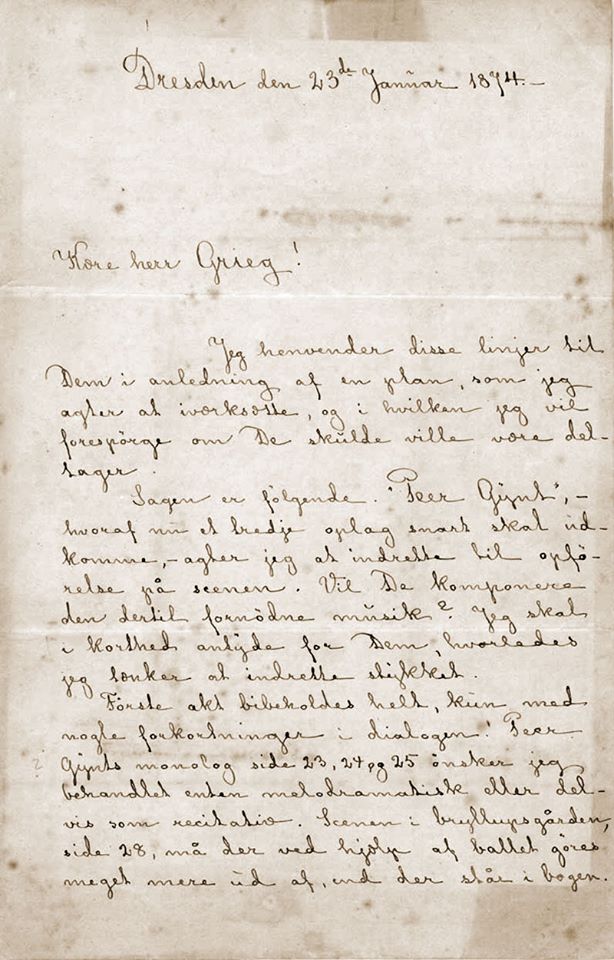 Dresden den 23de Januar 1874.–
Kære herr Grieg!
Jeg henvender disse linjer til
Dem i anledning af en plan, som jeg
agter at iværksætte, og i hvilken jeg vil
forespörge om De skulde ville være del-
tager.
Sagen er fölgende. "Peer Gynt", –
hvoraf nu et tredje oplag snart skal ud-
komme, – agter jeg at indrette til opfö-
relse på scenen. Vil De komponere
den dertil fornödne musik? Jeg skal
i korthed antyde for Dem, hvorledes
jeg tænker at indrette stykket.
Förste akt bibeholdes helt, kun med
nogle forkortninger i dialogen. Peer
Gynts monolog side 23, 24 og 25 önsker jeg
behandlet enten melodramatisk eller del-
vis som recitativ. Scenen i bryllupsgården,
side 28, må der ved hjælp af ballet göres
meget mere ud af, end der står i bogen.